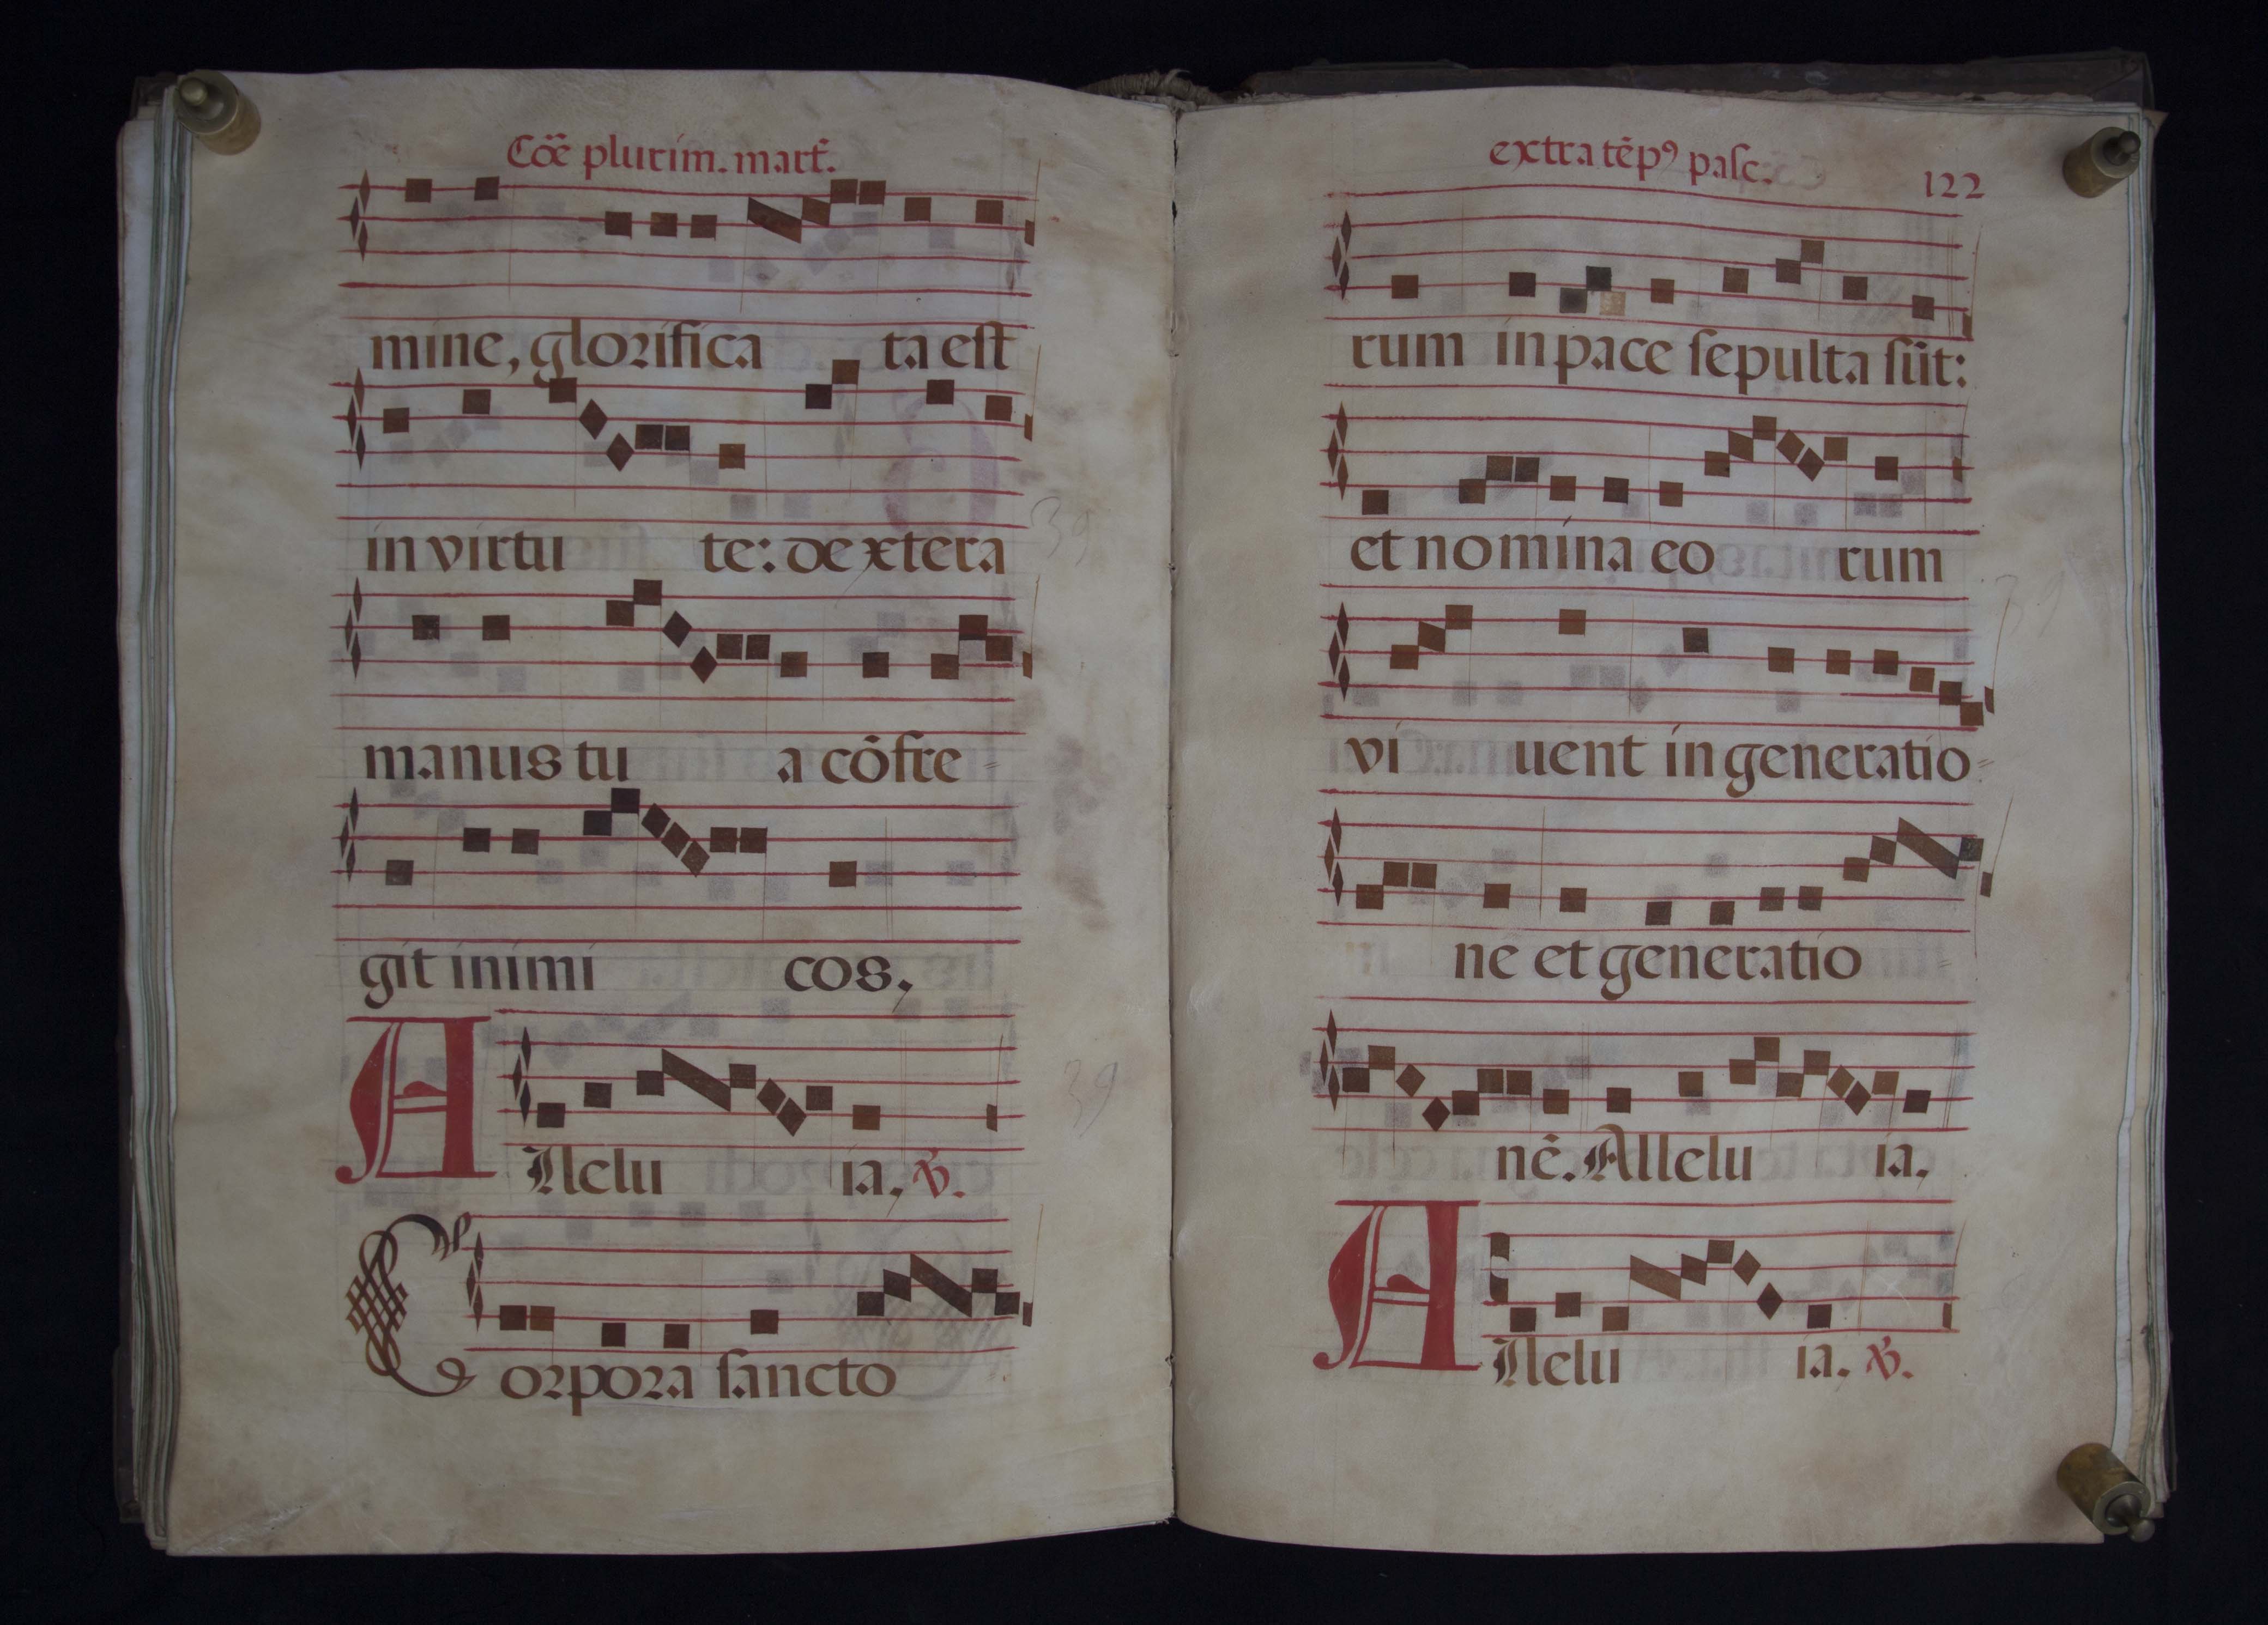 Cōe plurim. mart.
mine, glorifica ta est
in virtu te: dextera
manus tu a cōfre=
git inimi cos.
Allelu ia. ℣.
Corpora sancto
39
39
extra tēpꝰ pasc.
122
rum in pace sepulta sūt:
et nomina eo rum
vi uent in generatio=
ne et generatio =
nē. Allelu ia.
Allelu ia. ℣.
39